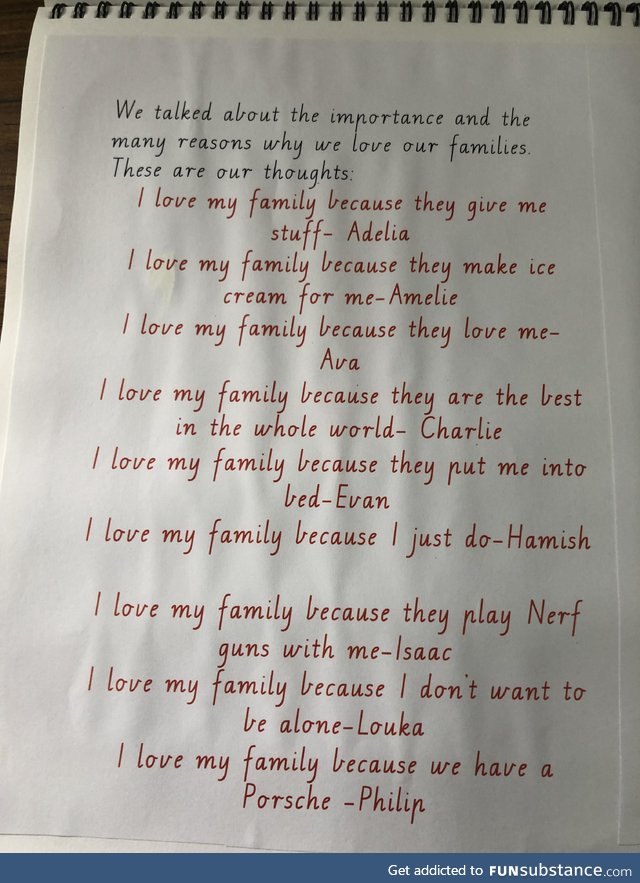 We talked about the importance and the
many reasons why we love our families.
These are our thoughts:
I love my family because they give me
stuff- Adelia
I love my family because they make ice
cream for me-Amelie
I love my family because they love me-
Ava
I love my family because they are the best
in the whole world- Charlie
I love my family because they put me into
bed-Evan
I love my family because I just do-Hamish
I love my family because they play Nerf
guns with me-Isaac
I love my family because I don't want to
be alone-Louka
I love my family because we have a
Porsche -Philip
Get addicted to FUNsubstance.com